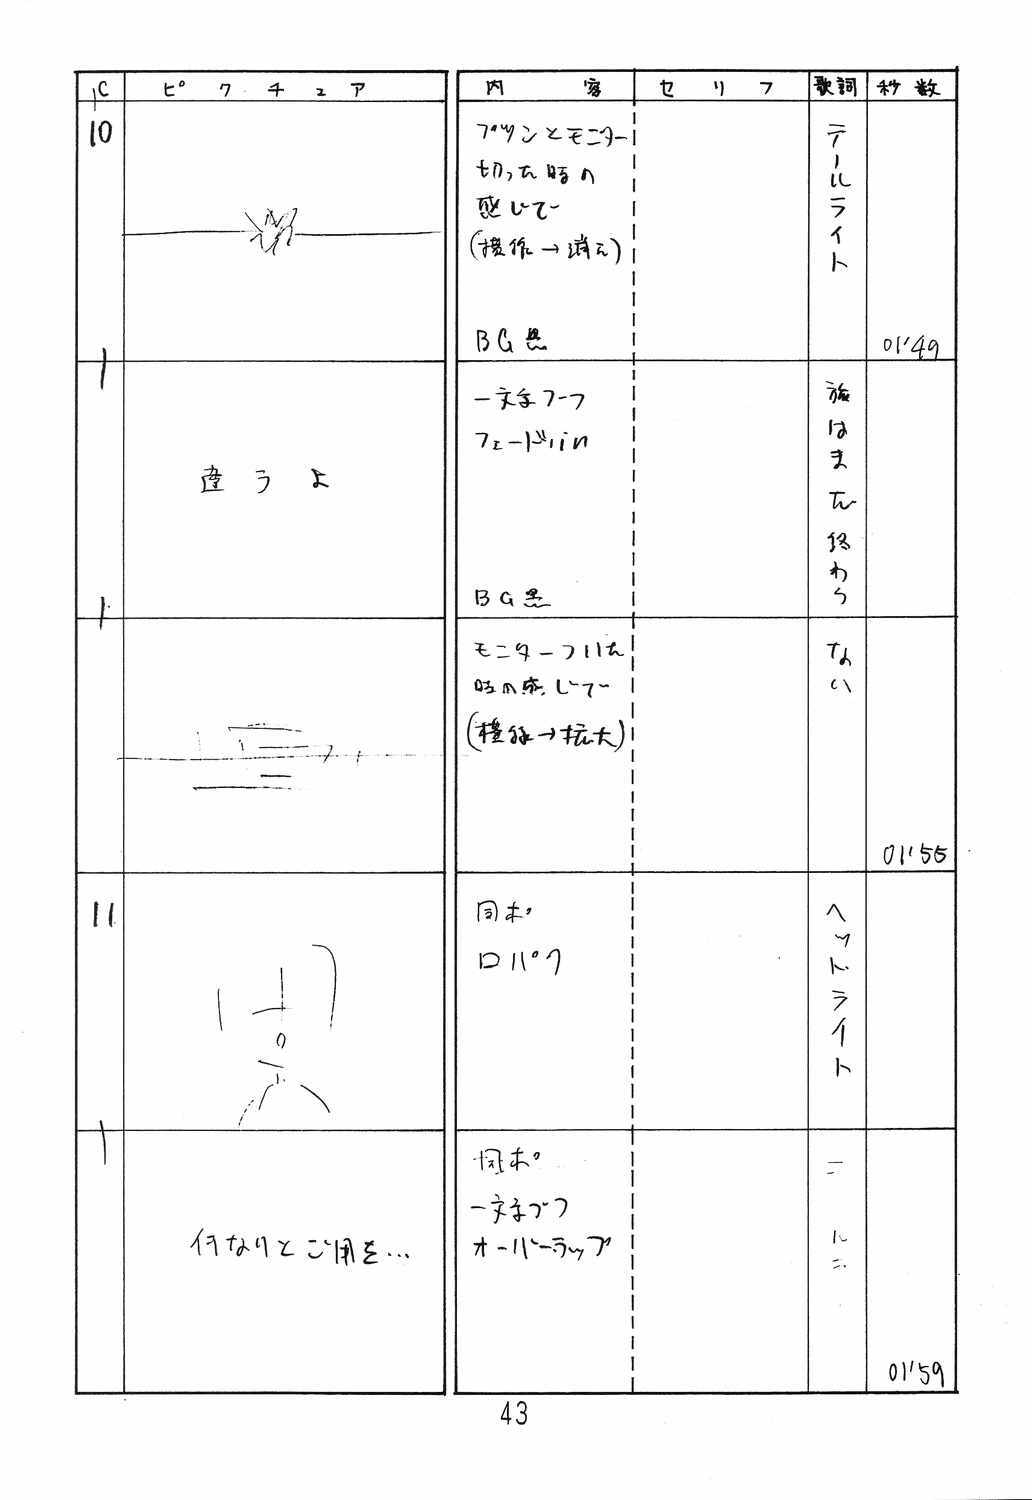 C ピクチュア 内容 セリフ 歌詞 秒数
10
プツンとモニター
切った時の
感じで
(横線→消え)
BG黒
テールライト
01'49
違うよ
一文字フーフ
フェードin
BG黒
旅はまだ終わら
モニターついた
時の感じで
(横線→拡大)
ない
01'55
11
同ポ
口パク
ヘッドライト
何なりとご用を…
同ポ
一文字ブフ
オーバーラップ
01'59
43